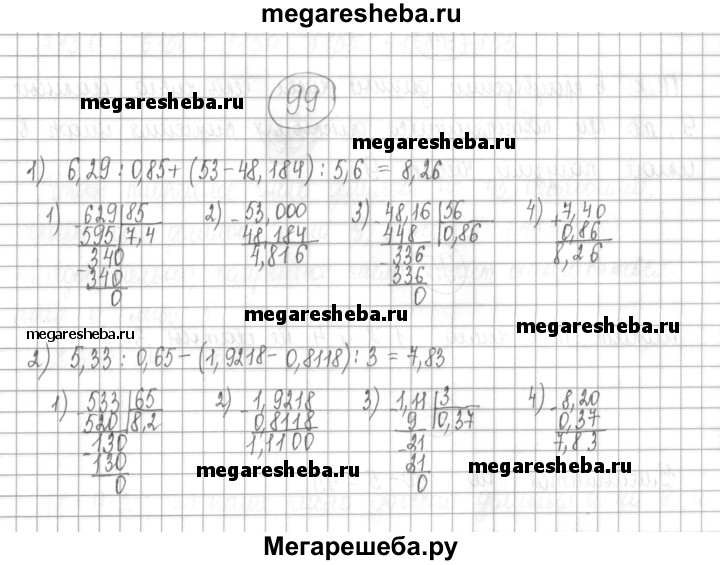 megaresheba.ru
99
megaresheba.ru
megaresheba.ru
1) 6,29 : 0,85 + (53 - 48,184) : 5,6 = 8,26
1) 629 | 85 2) 53,000 3) 48,16 | 56 4) 7,40
- 595 | 7,4 - 48,184 - 448 | 0,86 + 0,86
340 4,816 336 8,26
- 340 - 336
0 0
megaresheba.ru
megaresheba.ru
megaresheba.ru
2) 5,33 : 0,65 - (1,9218 - 0,8118) : 3 = 7,83
1) 533 | 65 2) 1,9218 3) 1,11 | 3 4) 8,20
- 520 | 8,2 - 0,8118 - 9 | 0,37 - 0,37
130 1,1100 21 7,83
- 130 - 21
0 0
megaresheba.ru
megaresheba.ru
Мегарешеба.ру